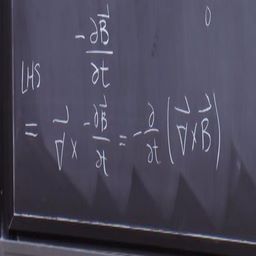 -∂B⃗/∂t
0
LHS
= ∇⃗ × -∂B⃗/∂t = -∂/∂t (∇⃗ × B⃗)